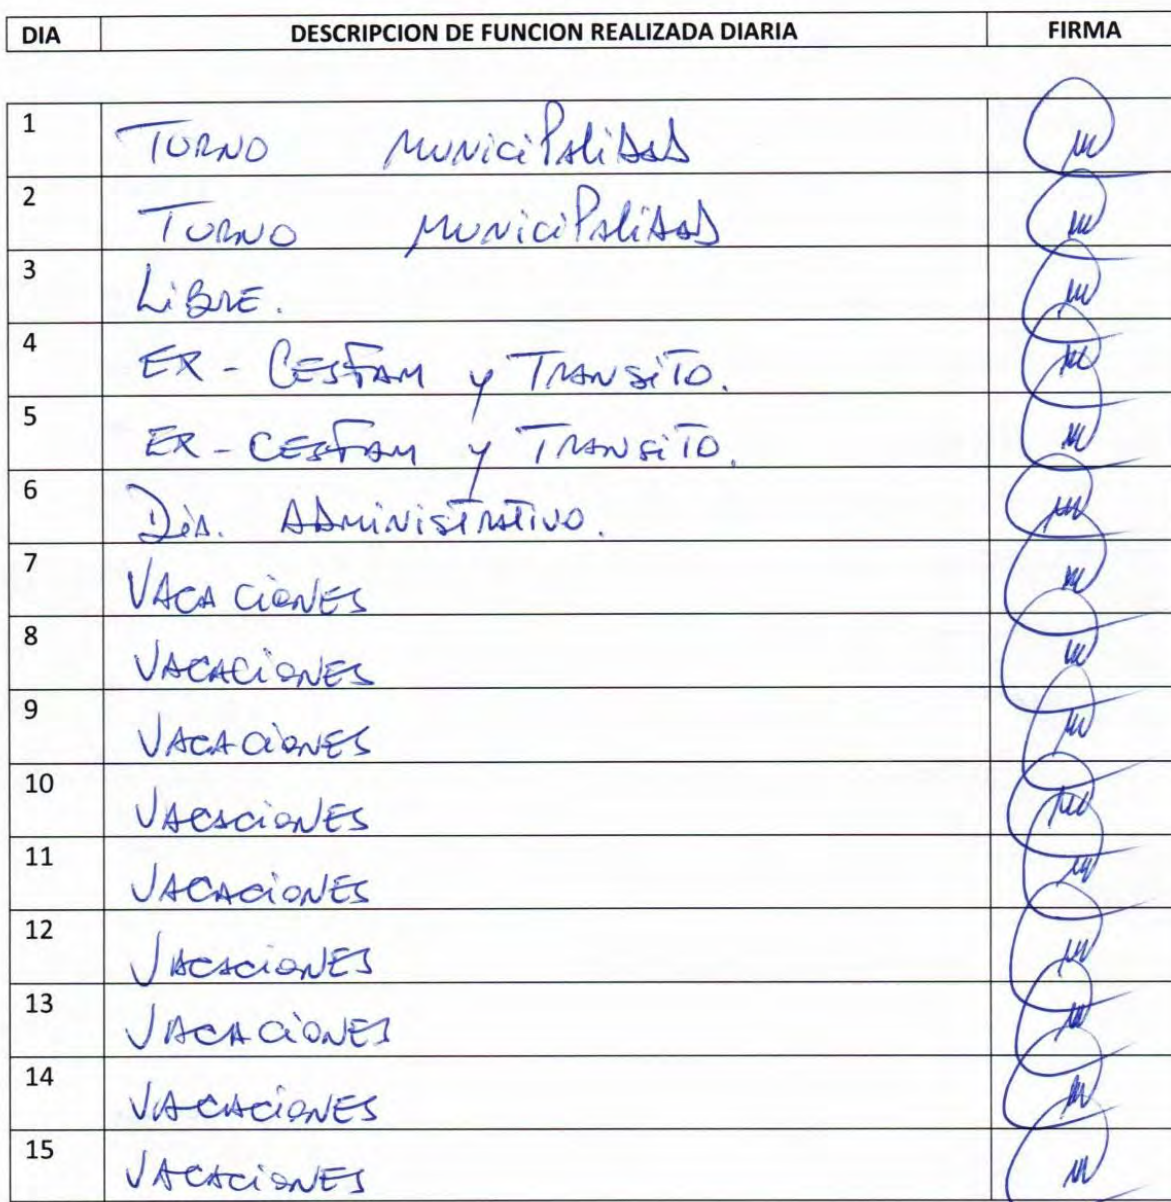 DIA DESCRIPCION DE FUNCION REALIZADA DIARIA FIRMA
1 TURNO MUNICIPALIDAD
2 TURNO MUNICIPALIDAD
3 LIBRE.
4 EX - CESFAM y TRANSITO.
5 EX - CESFAM y TRANSITO.
6 DiA. ADMINISTRATIVO.
7 VACACIONES
8 VACACIONES
9 VACACIONES
10 VACACIONES
11 VACACIONES
12 VACACIONES
13 VACACIONES
14 VACACIONES
15 VACACIONES